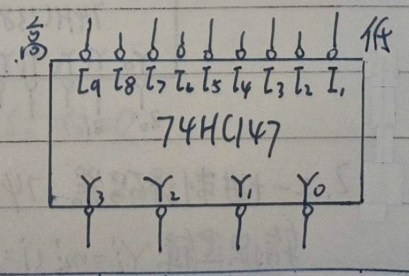 高 低
I9 I8 I7 I6 I5 I4 I3 I2 I1
74HC147
Y3 Y2 Y1 Y0